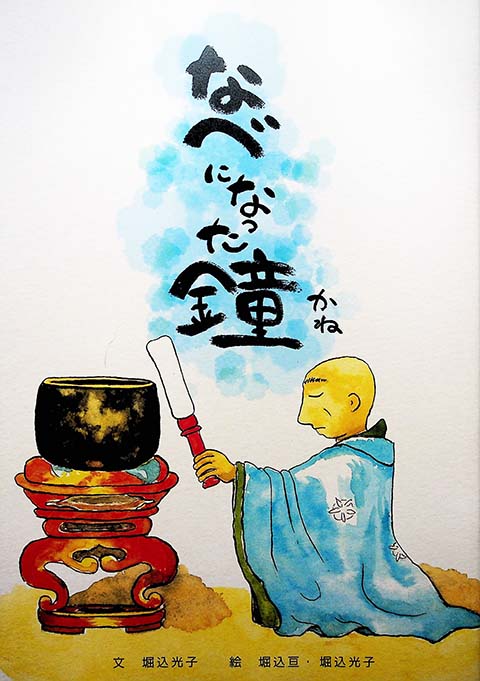 なべ
になった
鐘
かね
文 堀込光子 絵 堀込亘・堀込光子